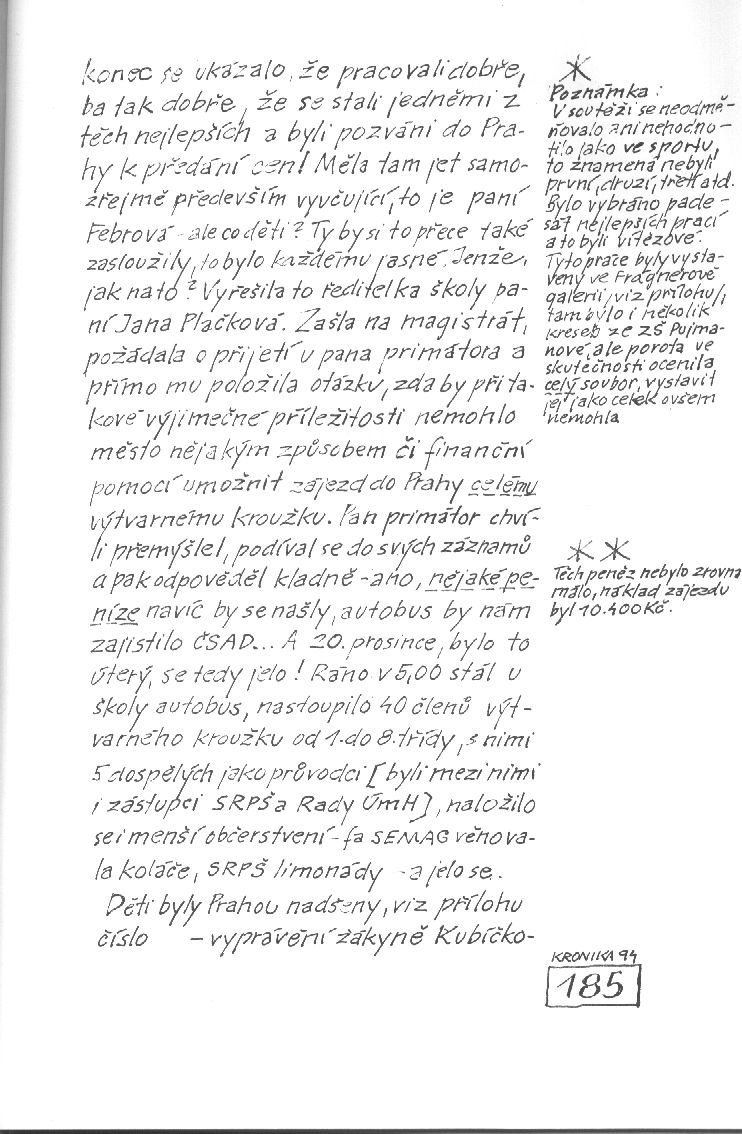 konec se ukázalo, že pracovali dobře,
ba tak dobře, že se stali jedněmi z
těch nejlepších a byli pozváni do Pra-
hy k předání cen! Měla tam jet samo-
zřejmě především vyučující, to je paní
Febrová - ale co děti? Ty by si to přece také
zasloužily, to bylo každému jasné. Jenže,
jak na to? Vyřešila to ředitelka školy pa-
ní Jana Plačková. Zašla na magistrát,
požádala o přijetí u pana primátora a
přímo mu položila otázku, zda by při ta-
kové výjimečné příležitosti nemohlo
město nějakým způsobem či finanční
pomocí umožnit zájezd do Prahy celému
výtvarnému kroužku. Pan primátor chví-
li přemýšlel, podíval se do svých záznamů
a pak odpověděl kladně - ano, nějaké pe-
níze navíc by se našly, autobus by nám
zajistilo ČSAD... A 20. prosince, bylo to
úterý, se tedy jelo! Ráno v 5,00 stál u
školy autobus, nastoupilo 40 členů výt-
varného kroužku od 1. do 8. třídy, s nimi
5 dospělých jako průvodci [byli mezi nimi
i zástupci SRPŠ a Rady ÚmH], naložilo
se i menší občerstvení - fa SEMAG věnova-
la koláče, SRPŠ limonády - a jelo se.
Děti byly Prahou nadšeny, viz přílohu
číslo - vyprávění žákyně Kubíčko-
*
Poznámka:
V soutěži se neodmě-
ňovalo ani nehodno-
tilo jako ve sportu,
to znamená nebyli
první, druzí, třetí atd.
Bylo vybráno pade-
sát nejlepších prací
a to byli vítězové.
Tyto práce byly vysta-
veny ve Fragnerově
galerii, viz přílohu,
tam bylo i několik
kreseb ze ZŠ Pujma-
nové, ale porota ve
skutečnosti ocenila
celý soubor, vystavit
jej jako celek ovšem
nemohla
* *
Těch peněz nebylo zrovna
málo, náklad zájezdu
byl 10.400 Kč.
KRONIKA 94
185